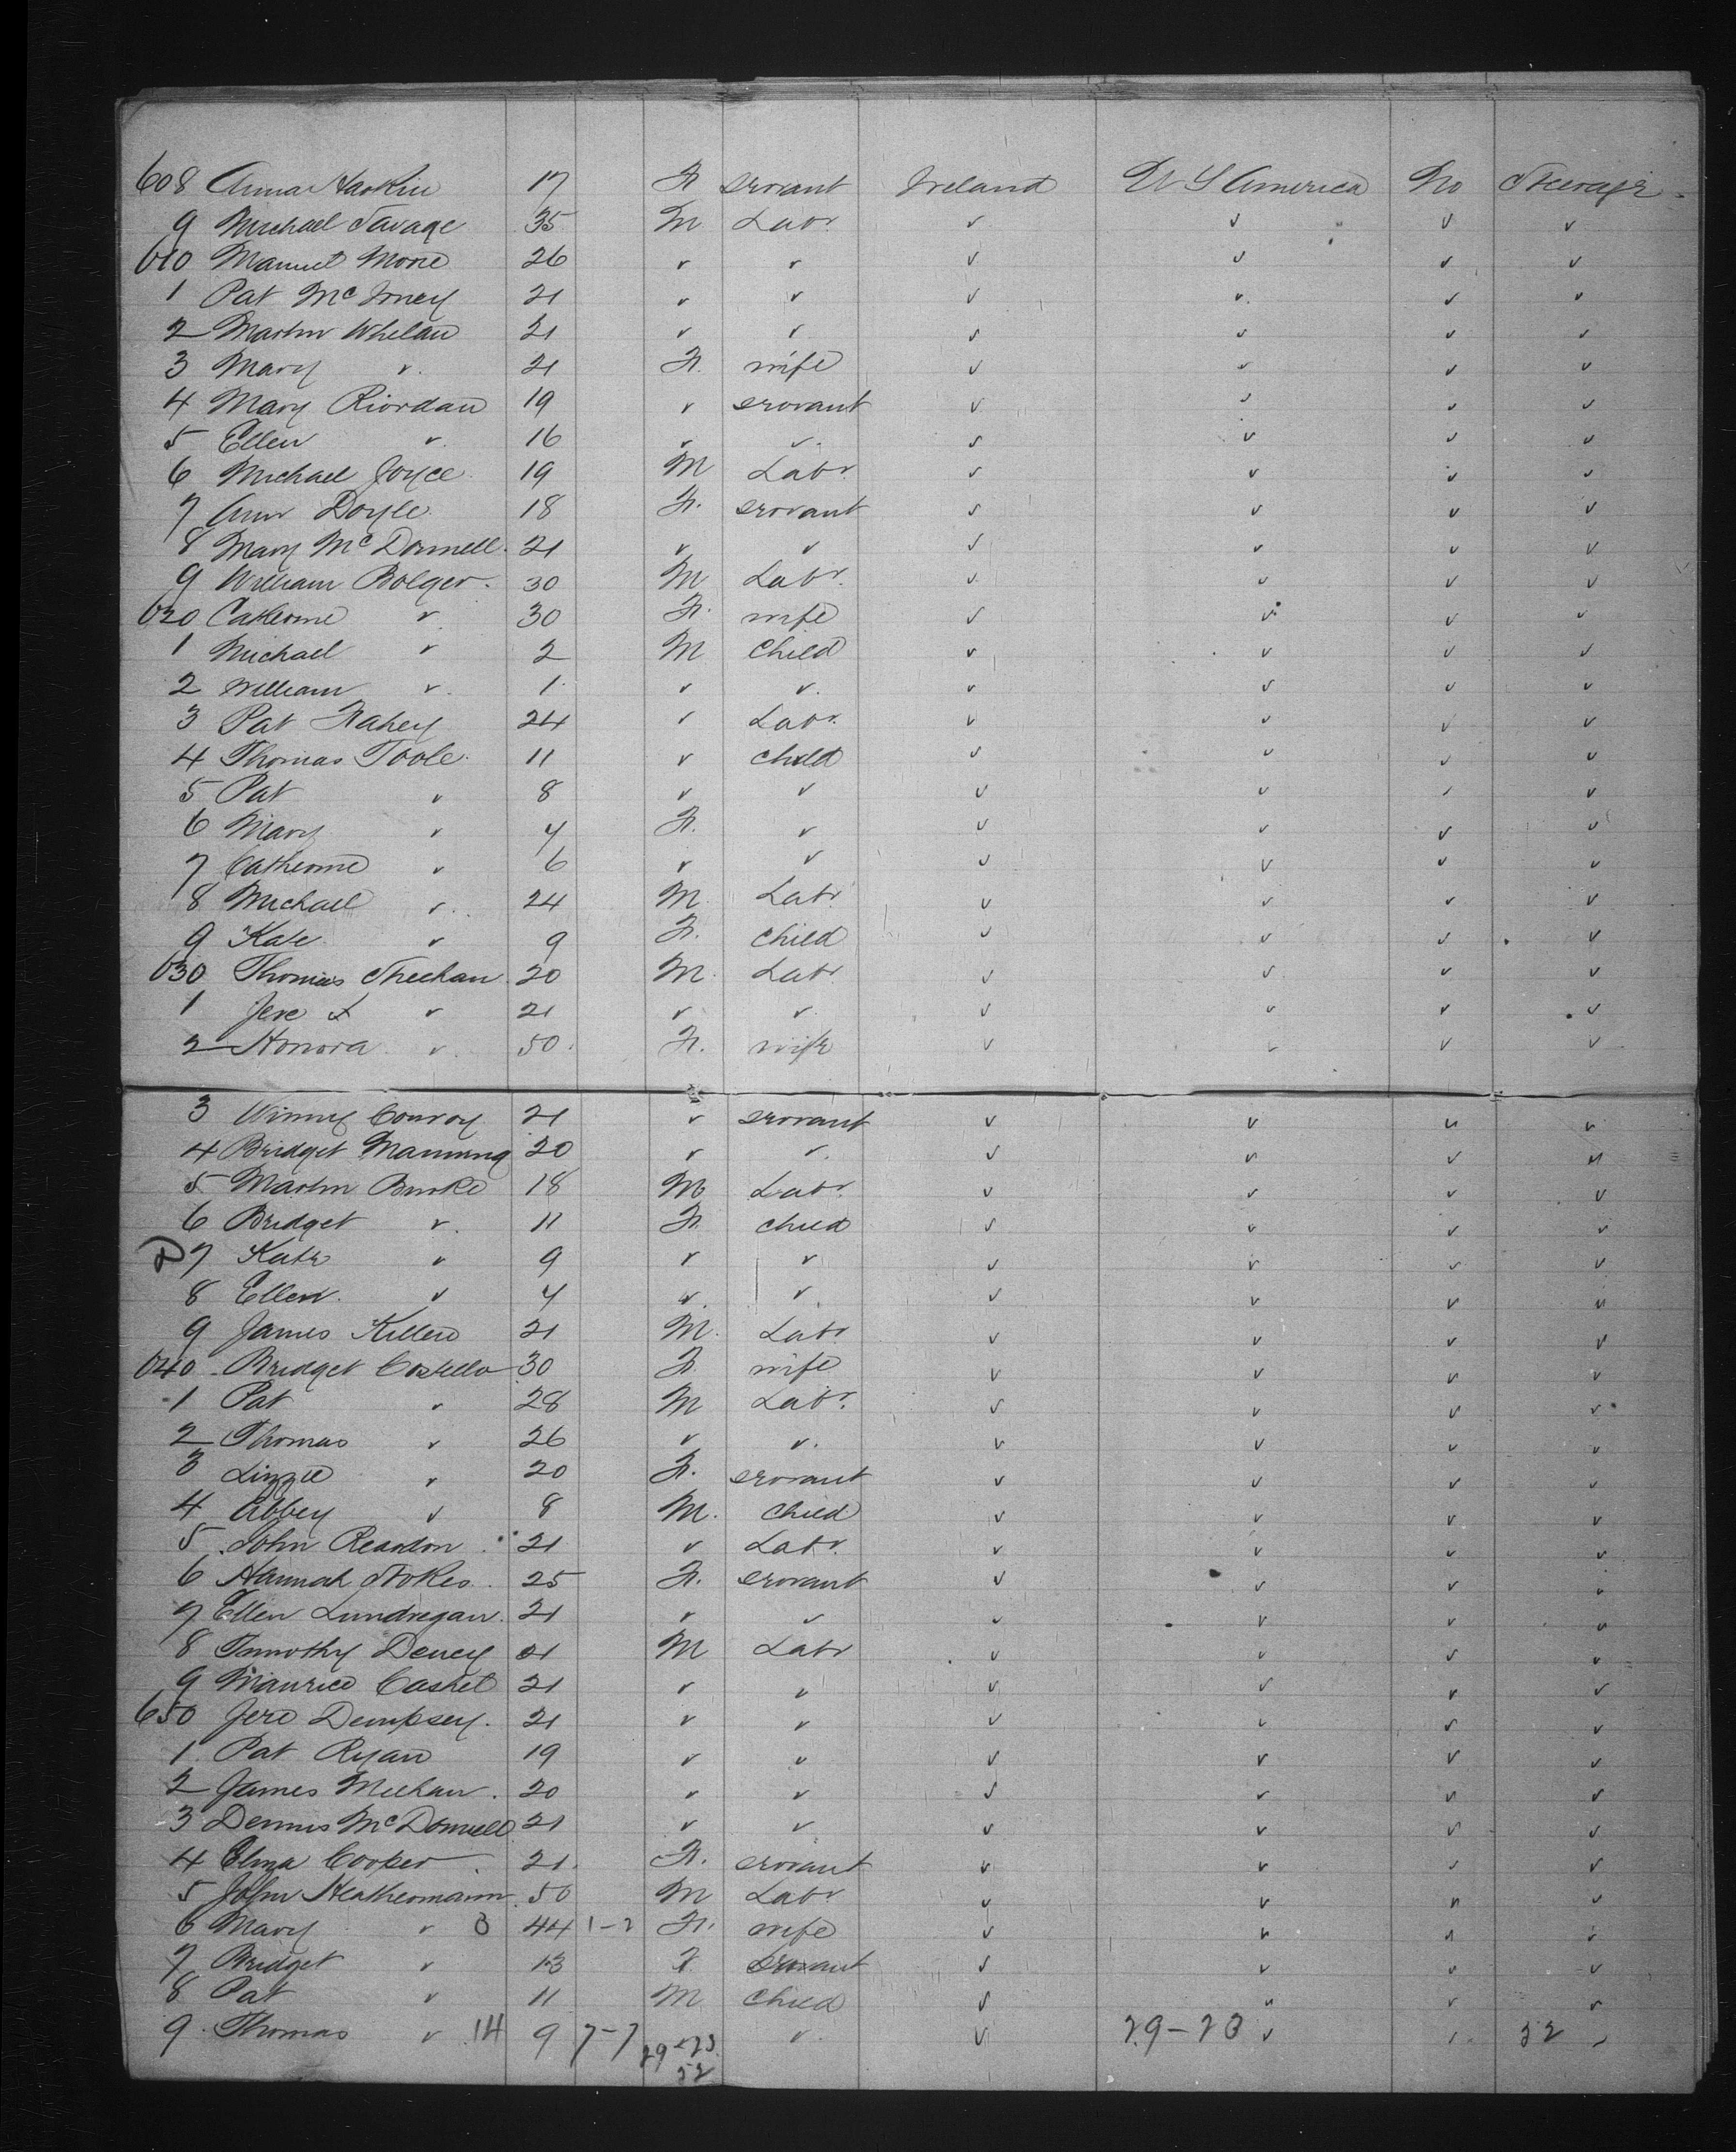 608 Anna Harkin 17 F. servant Ireland U S America No Steerage
9 Michael Savage 35 M Labr. " " " "
610 Manuel More 26 " " " " " "
1 Pat McInney 21 " " " " " "
2 Martin Whelan 21 " " " " " "
3 Mary " 21 F. wife " " " "
4 Mary Riordan 19 " servant " " " "
5 Ellen " 16 " " " " " "
6 Michael Joyce 19 M Labr " " " "
7 Ann Doyle 18 F. servant " " " "
8 Mary McDonnell 21 " " " " " "
9 William Bolger 30 M Labr. " " " "
620 Catherine " 30 F. wife " " " "
1 Michael " 2 M Child " " " "
2 William " 1 " " " " " "
3 Pat Fahey 24 " Labr. " " " "
4 Thomas Toole 11 " child " " " "
5 Pat " 8 " " " " " "
6 Mary " 4 F. " " " " "
7 Catherine " 6 " " " " " "
8 Michael " 24 M Labr " " " "
9 Kate " 9 F. child " " " "
630 Thomas Sheehan 20 M. Labr " " " "
1 Jere " 21 " " " " " "
2 Honora " 50 F. wife " " " "
3 Winny Conroy 21 " servant " " " "
4 Bridget Manning 20 " " " " " "
5 Martin Burke 18 M Labr. " " " "
6 Bridget " 11 F. child " " " "
7 Kate " 9 " " " " " "
8 Ellen " 4 " " " " " "
9 James Killen 21 M. Labr " " " "
640 Bridget Costello 30 F. wife " " " "
1 Pat " 28 M Labr. " " " "
2 Thomas " 26 " " " " " "
3 Lizzie " 20 F. servant " " " "
4 Abbey " 8 M. Child " " " "
5 John Reardon 21 " Labr. " " " "
6 Hannah Stokes 25 F. servant " " " "
7 Ellen Lundregan 21 " " " " " "
8 Timothy Dency 21 M Labr " " " "
9 Maurice Cashel 21 " " " " " "
650 Jere Dempsey 21 " " " " " "
1 Pat Ryan 19 " " " " " "
2 James Meehan 20 " " " " " "
3 Dennis McDonnell 21 " " " " " "
4 Eliza Cooper 21 F. servant " " " "
5 John Heathermann 50 M Labr " " " "
6 Mary " 3 44 1-2 F. wife " " " "
7 Bridget " 13 F servant " " " "
8 Pat " 11 M Child " " " "
9 Thomas " 14 9 7-7 " " 29-23 " " 52 "
29-23
52